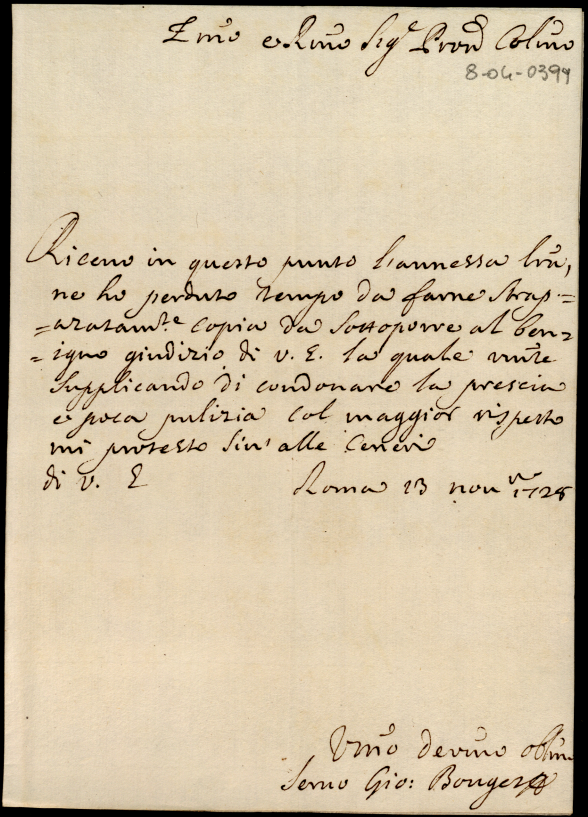 Emo e Rmo Sigre Pron Colmo
8-04-0399
Ricevo in questo punto l'annessa lra,
ne ho perduto tempo da farne strap=
=azatamte copia da sottoporre al ben=
=igno giudizio di V. E. la quale vmte
supplicando di condonare la prescia
e poca pulizia col maggior rispetto
mi protesto sin' alle ceneri
di V. E Roma 13 novre 1728
Vmo devmo obbmo
Servo Gio: Bouget